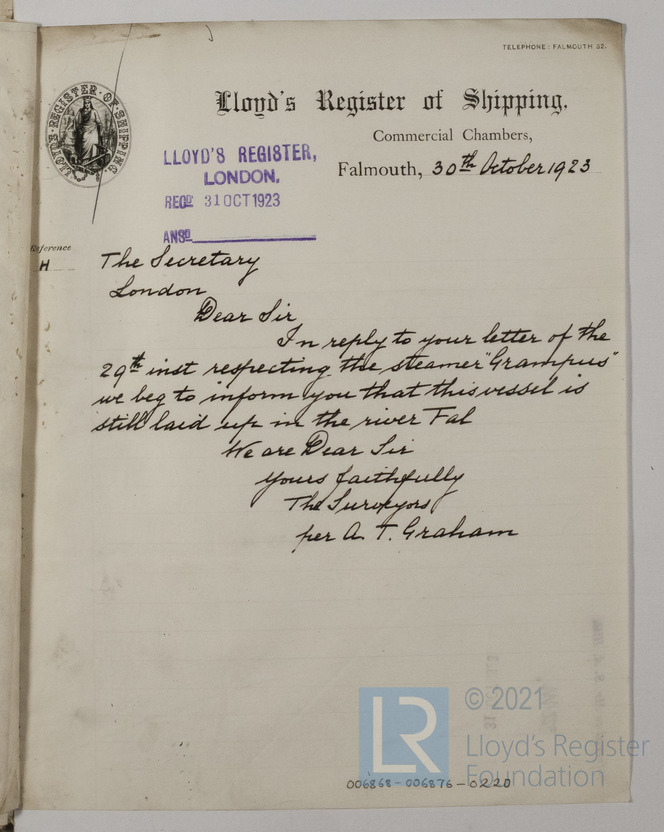 TELEPHONE: FALMOUTH 52.
LLOYD'S REGISTER OF SHIPPING
Lloyd's Register of Shipping.
Commercial Chambers,
Falmouth, 30th October 1923
LLOYD'S REGISTER,
LONDON.
RECD 31 OCT 1923
ANSD
Reference
H
The Secretary
London
Dear Sir
In reply to your letter of the
29th inst respecting the steamer "Grampus"
we beg to inform you that this vessel is
still laid up in the river Fal
We are Dear Sir
Yours faithfully
The Surveyors
per A. T. Graham
LR
© 2021
Lloyd's Register
Foundation
006868-006876-0220